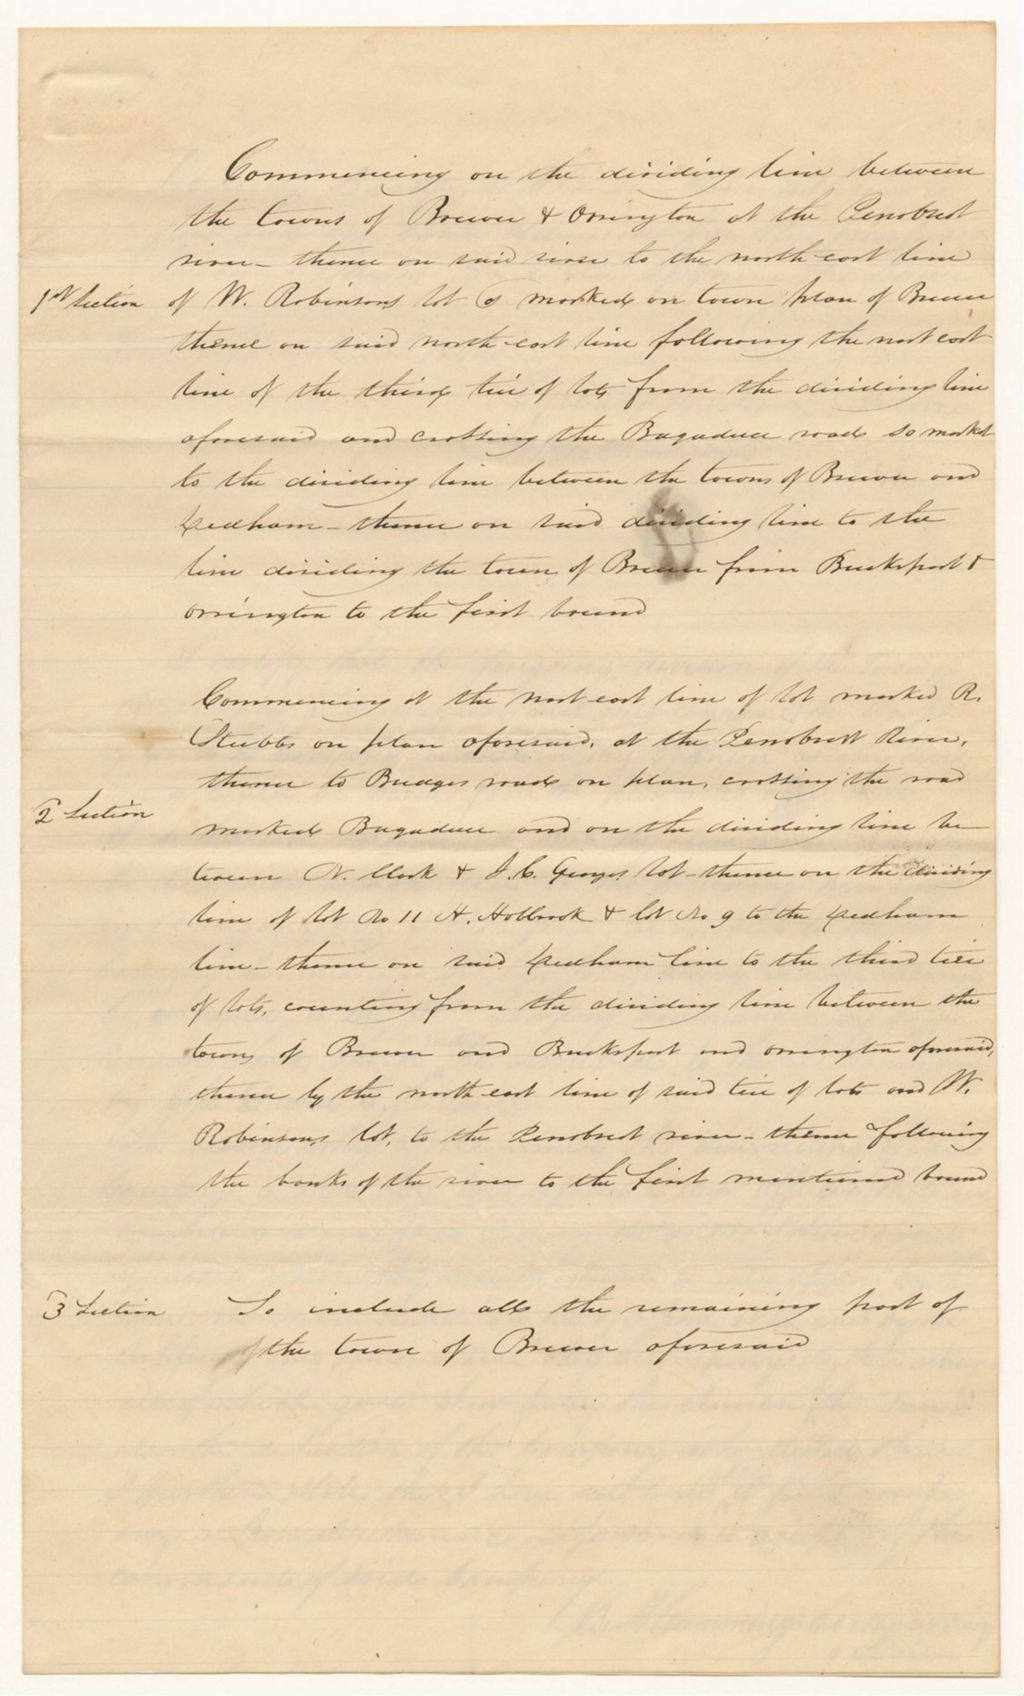 Commencing on the dividing line between
the towns of Brewer & Orrington at the Penobscot
river - thence on said river to the north-east line
1st Section of W. Robinsons lot so marked on town plan of Brewer
thence on said north-east line following the north east
line of the third tier of lots from the dividing line
aforesaid and crossing the Bagaduce road so marked
to the dividing line between the towns of Brewer and
Dedham - thence on said dividing line to the
line dividing the town of Brewer from Bucksport &
Orrington to the first bound
Commencing at the north-east line of lot marked R.
Stubbs on plan aforesaid, at the Penobscot River,
thence to Bridges road on plan, crossing the road
2 Section marked Bagaduce and on the dividing line be
tween N. Clark & J. C. Georges lot - thence on the dividing
line of lot No 11 H. Holbrook & lot No 9 to the Dedham
line - thence on said Dedham line to the third tier
of lots, counting from the dividing line between the
towns of Brewer and Bucksport and Orrington aforesaid,
thence by the north-east line of said tier of lots and W.
Robinsons lot, to the Penobscot river - thence following
the banks of the river to the first mentioned bound
3 Section To include all the remaining part of
the town of Brewer aforesaid